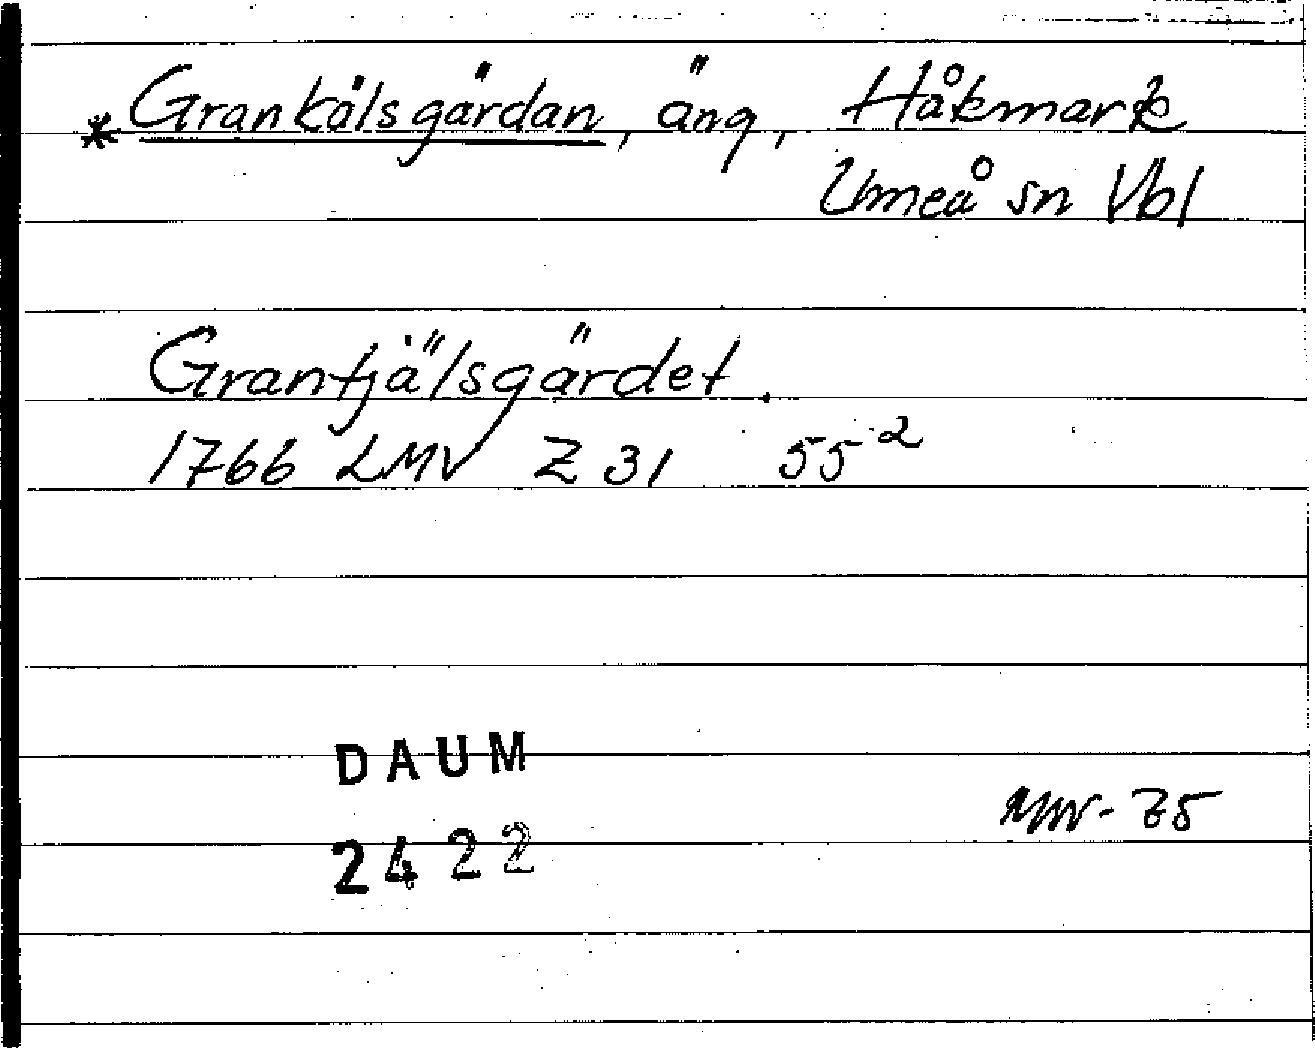 *Grankälsgärdan, äng, Håkmark
Umeå sn Vbl
Grantjälsgärdet.
1766 LMV Z 31 55²
DAUM
2422